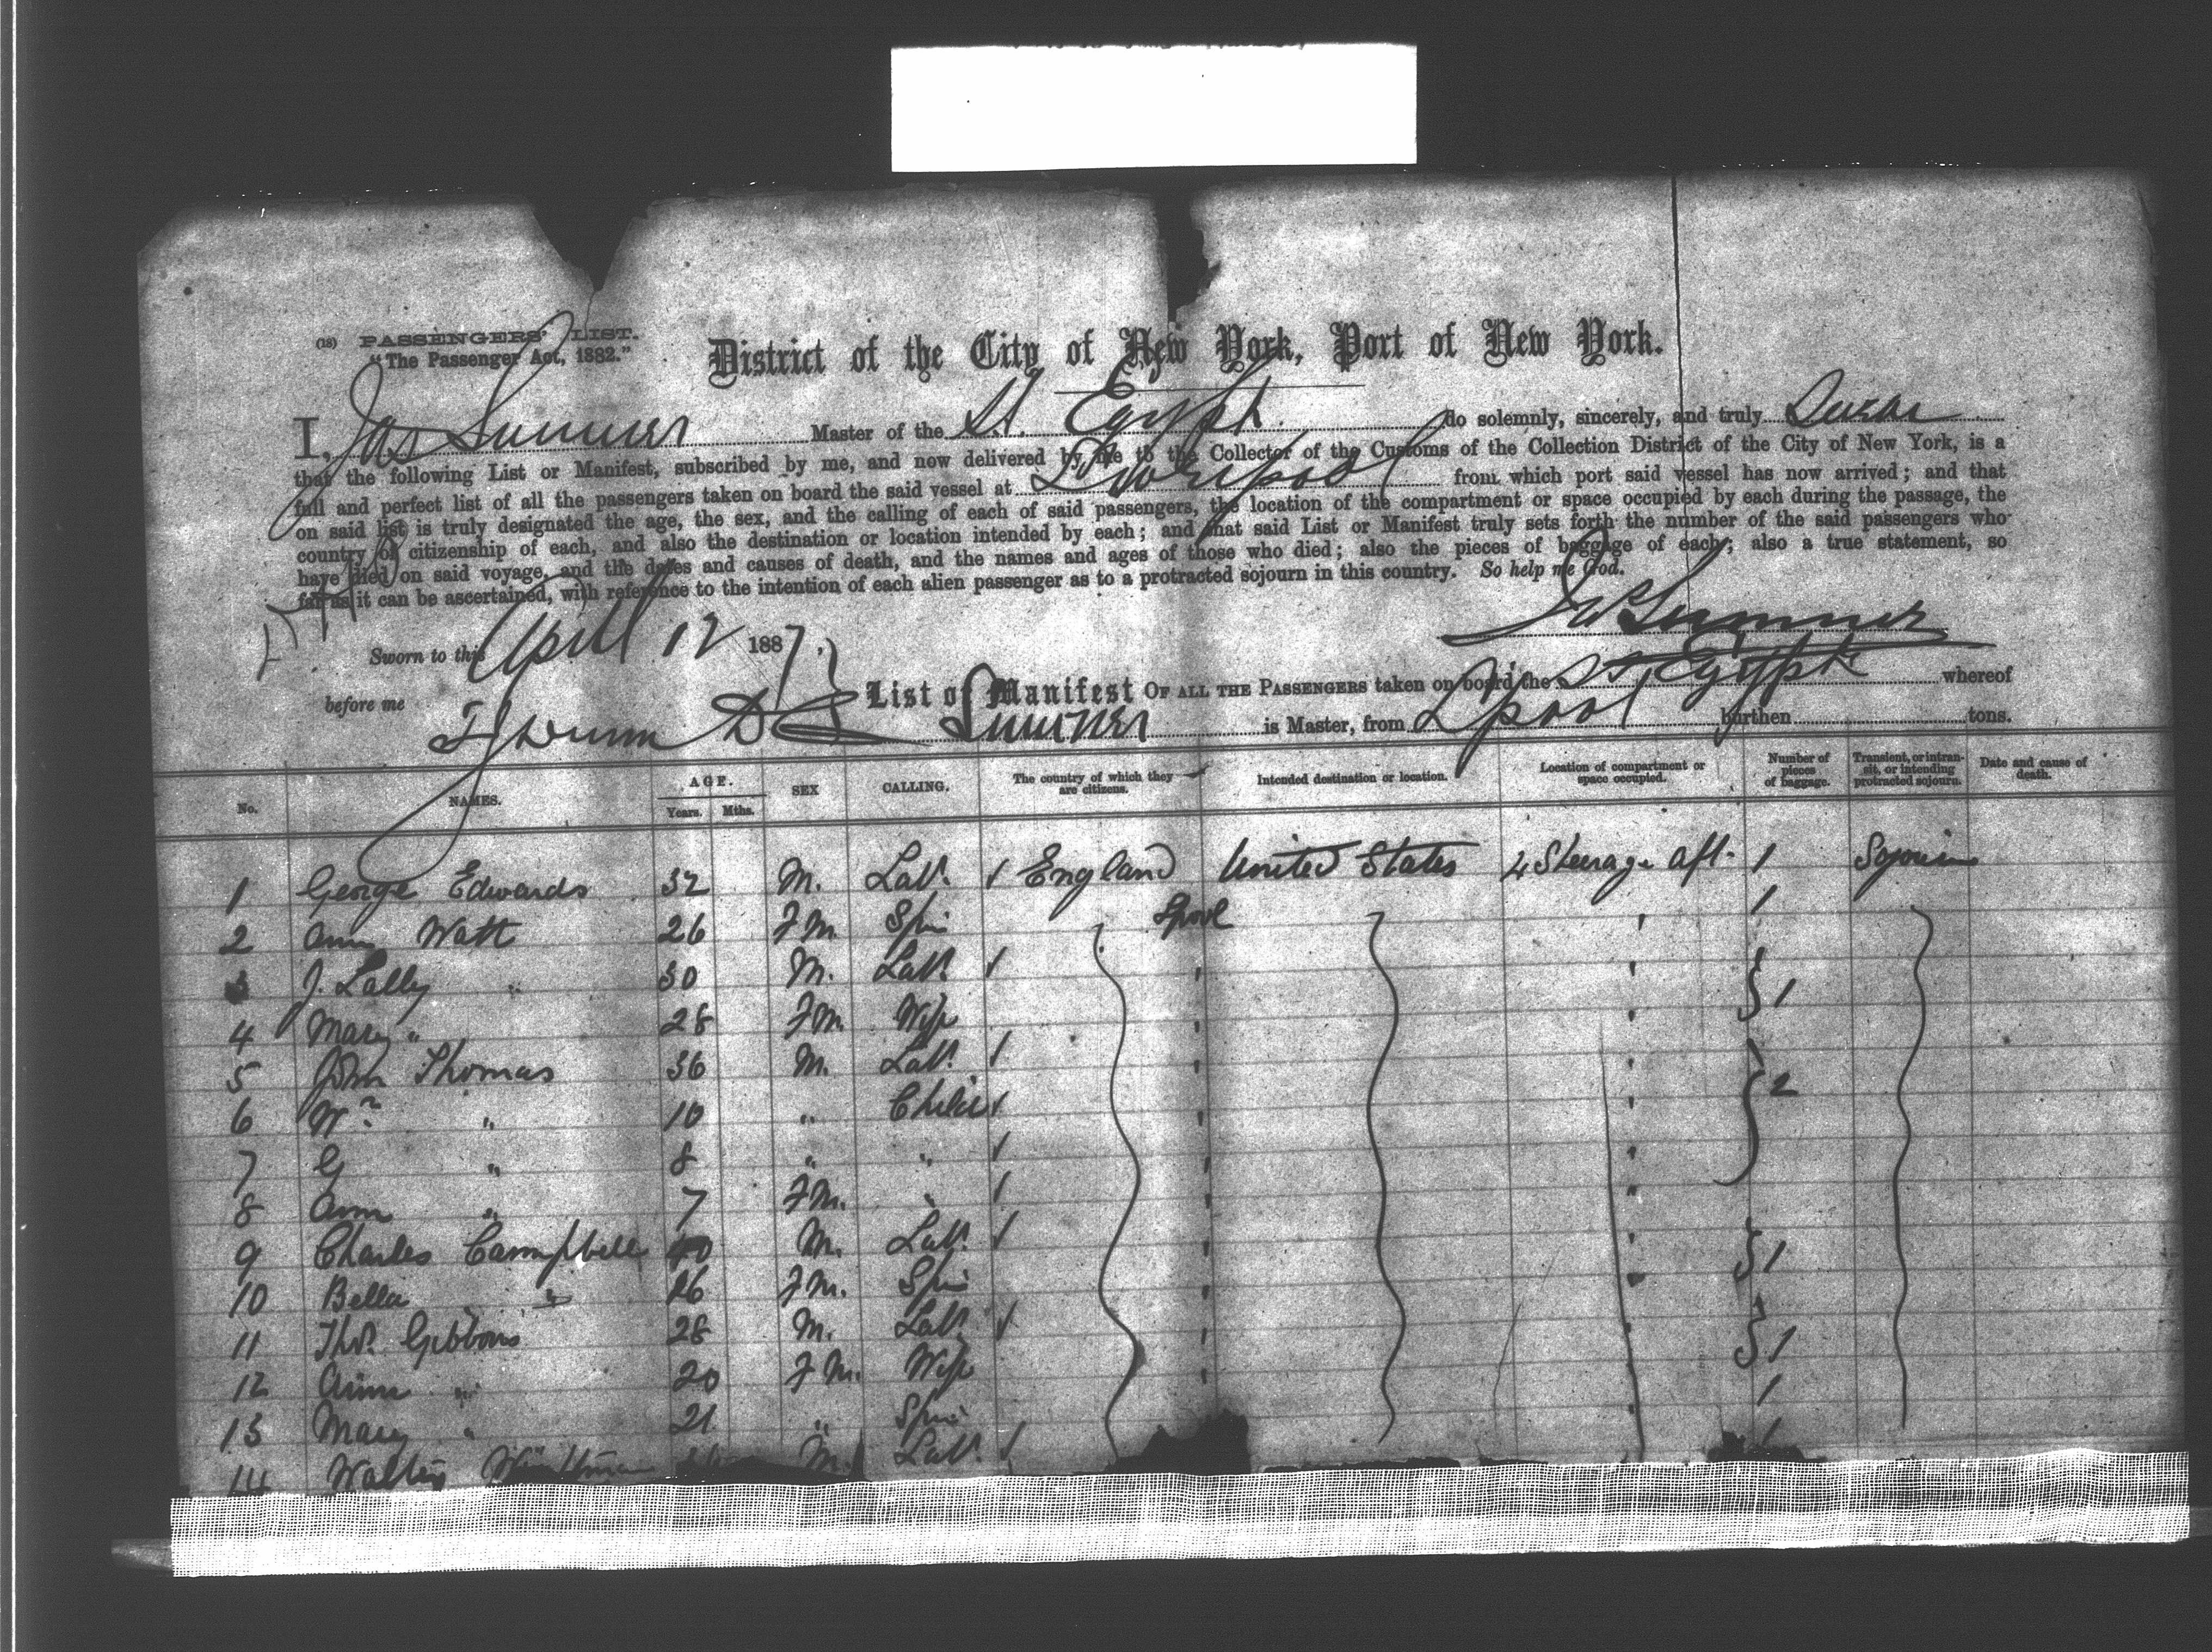 (18) PASSENGERS' LIST.
"The Passenger Act, 1882."
District of the City of New York, Port of New York.
I, Jas Sumner Master of the St. Egypt. do solemnly, sincerely, and truly Swear
that the following List or Manifest, subscribed by me, and now delivered by me to the Collector of the Customs of the Collection District of the City of New York, is a
full and perfect list of all the passengers taken on board the said vessel at Liverpool from which port said vessel has now arrived; and that
on said list is truly designated the age, the sex, and the calling of each of said passengers, the location of the compartment or space occupied by each during the passage, the
country of citizenship of each, and also the destination or location intended by each; and that said List or Manifest truly sets forth the number of the said passengers who
have died on said voyage, and the dates and causes of death, and the names and ages of those who died; also the pieces of baggage of each; also a true statement, so
far as it can be ascertained, with reference to the intention of each alien passenger as to a protracted sojourn in this country. So help me God.
Jas Sumner
Sworn to this April 12 1887,
before me
List or Manifest OF ALL THE PASSENGERS taken on board the SS Egypt whereof
Sumner is Master, from Lpool burthen tons.
No. NAMES. AGE. Years. Mths. SEX CALLING. The country of which they are citizens. Intended destination or location. Location of compartment or space occupied. Number of pieces of baggage. Transient, or intransit, or intending protracted sojourn. Date and cause of death.
1 George Edwards 32 M. Labr. England United States 4 Steerage aft. 1 Sojourn
2 Watt 26 FM Spin Lpool " 1
3 J. Lally " 30 M. Labr. " "
4 Mary " 28 FM. Wife " " 1
5 John Thomas 36 M. Labr. " "
6 Wm " 10 " Child " " 2
7 G " 8 " " " "
8 Ann " 7 FM. " " "
9 Charles Campbell 40 M. Labr. " "
10 Bella " 26 FM. Spin " " 1
11 Thos. Gibbons 28 M. Labr. " "
12 Ann " 20 FM. Wife " " 1
13 Mary " 21 " Spin 1
14 M. Labr. 1